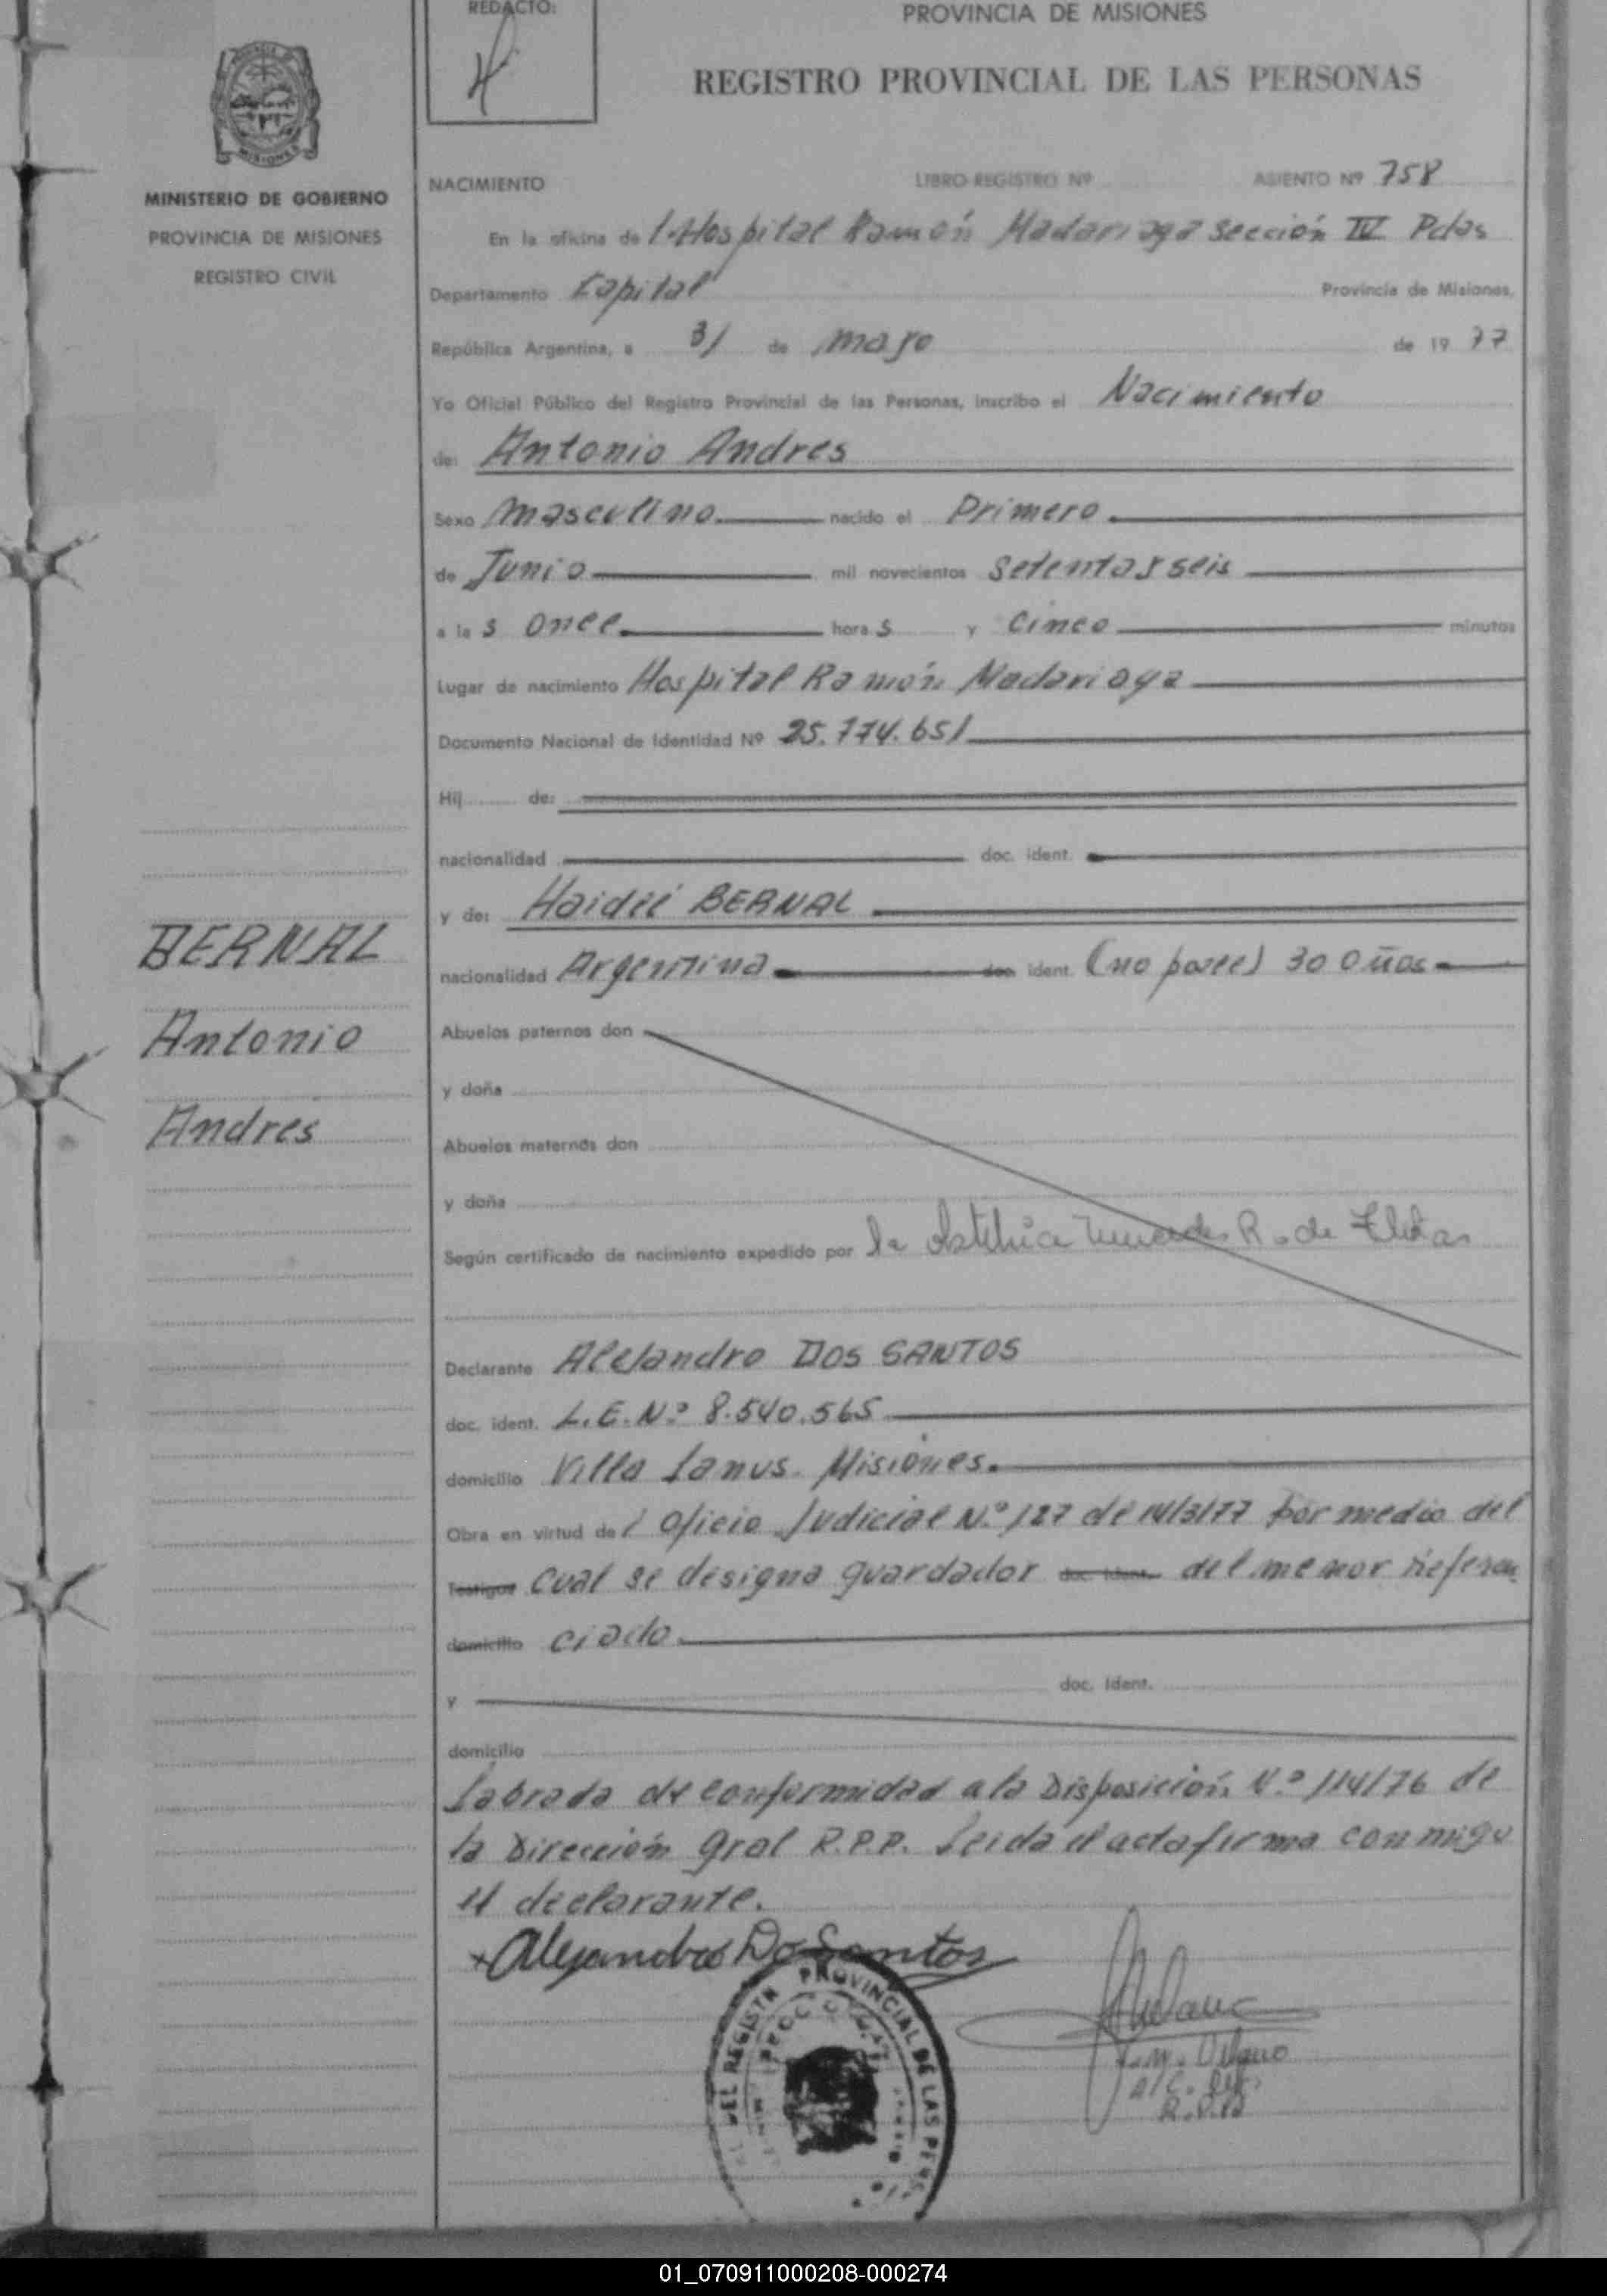 REDACTO:
PROVINCIA DE MISIONES
REGISTRO PROVINCIAL DE LAS PERSONAS
MISIONES
MINISTERIO DE GOBIERNO
PROVINCIA DE MISIONES
REGISTRO CIVIL
NACIMIENTO LIBRO REGISTRO Nº ASIENTO Nº 758
En la oficina del Hospital Ramón Madariaga Sección IV Pdas
Departamento Capital Provincia de Misiones,
República Argentina, a 31 de mayo de 1977
Yo Oficial Público del Registro Provincial de las Personas, inscribo el Nacimiento
de: Antonio Andres
Sexo masculino nacido el Primero
de Junio mil novecientos setenta y seis
a las once horas y cinco minutos
Lugar de nacimiento Hospital Ramón Madariaga
Documento Nacional de Identidad Nº 25.774.651
Hij de:
nacionalidad doc. ident.
y de: Haideé BERNAL
nacionalidad Argentina doc ident. (no posee) 30 años
BERNAL
Antonio
Andres
Abuelos paternos don
y doña
Abuelos maternos don
y doña
Según certificado de nacimiento expedido por la R. de
Declarante Alejandro DOS SANTOS
doc. ident. L.E.Nº 8.540.565
domicilio Villa Lanus. Misiones.
Obra en virtud del Oficio Judicial Nº 127 de 14/3/77 por medio del
Testigos cual se designa guardador doc. ident. del menor referen
domicilio ciado.
y doc. ident.
domicilio
Labrada de conformidad a la Disposición Nº 114/76 de
la Dirección Gral R.P.P. Leida el acta firma conmigo
el declarante.
Alejandro Do Santos
DEL REGISTR PROVINCIAL DE LAS PERS
01_070911000208-000274